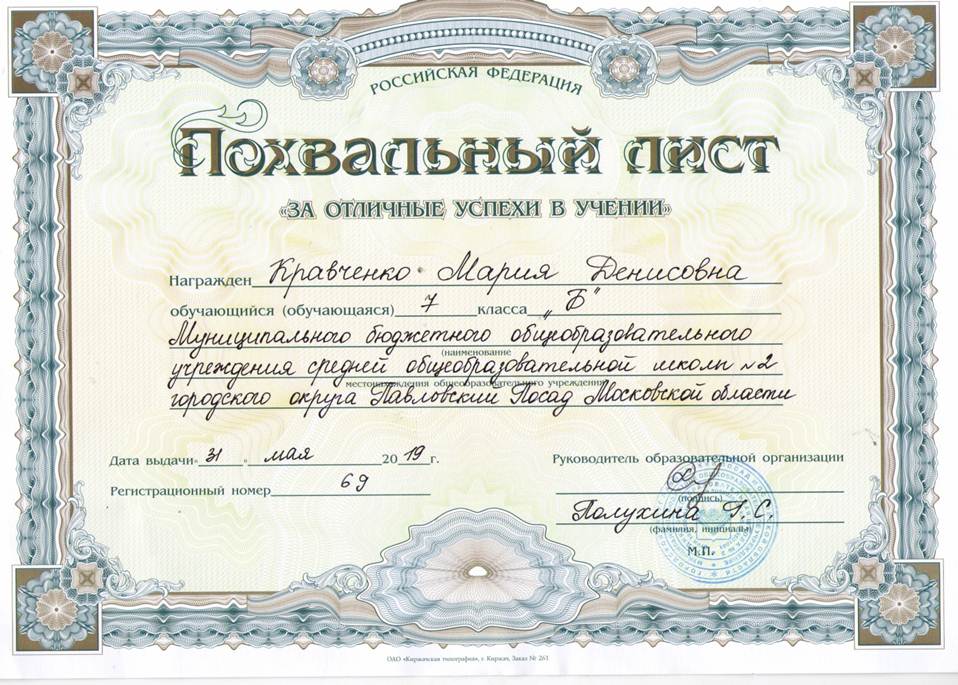 РОССИЙСКАЯ ФЕДЕРАЦИЯ
Похвальный лист
«ЗА ОТЛИЧНЫЕ УСПЕХИ В УЧЕНИИ»
Награжден Кравченко Мария Денисовна
обучающийся (обучающаяся) 7 класса „Б"
Муниципального бюджетного общеобразовательного
(наименование
учреждения средней общеобразовательной школы №2
местонахождения общеобразовательного учреждения)
городского округа Павловский Посад Московской области
Дата выдачи «31» мая 2019 г.
Регистрационный номер 69
Руководитель образовательной организации
(подпись)
Полухина Г. С.
(фамилия, инициалы)
М.П.
ОАО «Киржачская типография», г. Киржач, Заказ № 261